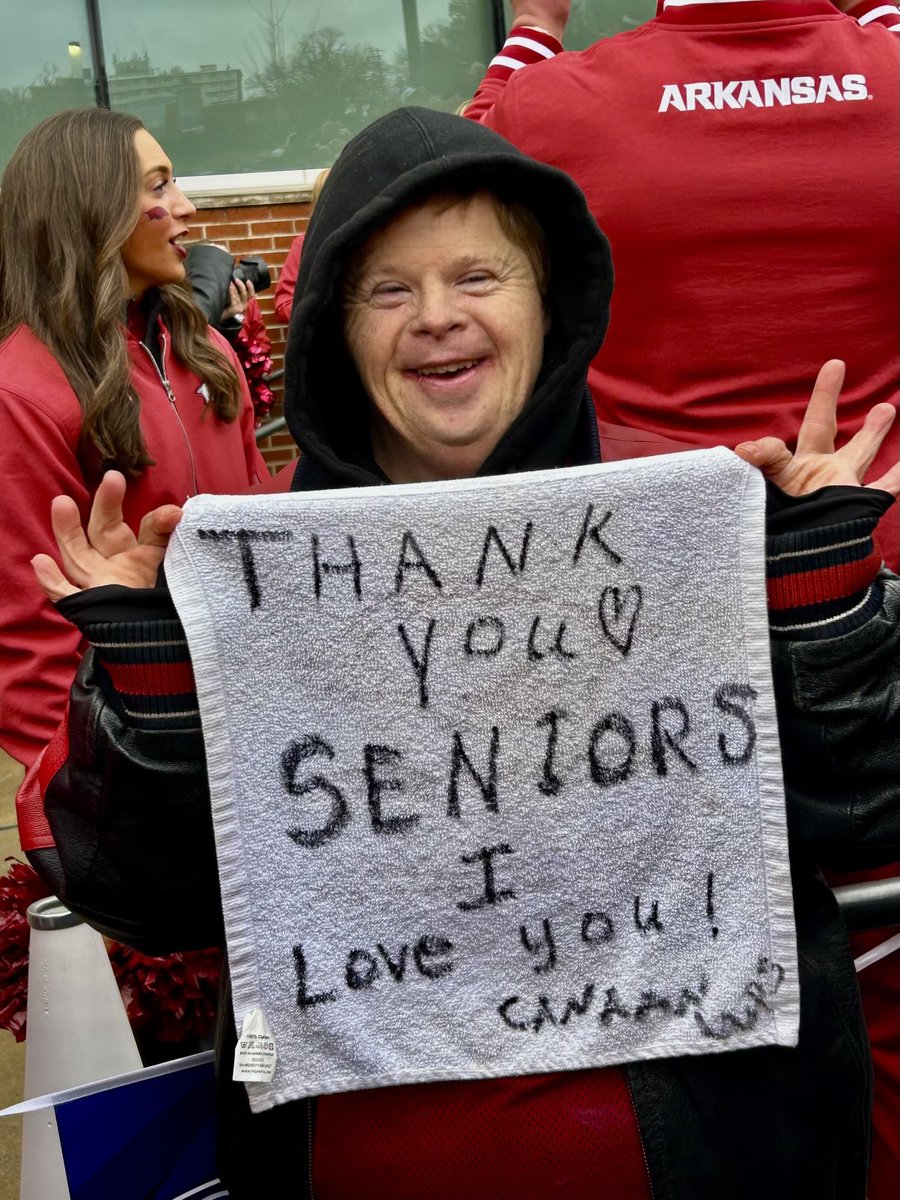 ARKANSAS
THANK
you
SENIORS
I
Love you!
CANAAN
100% Cotton